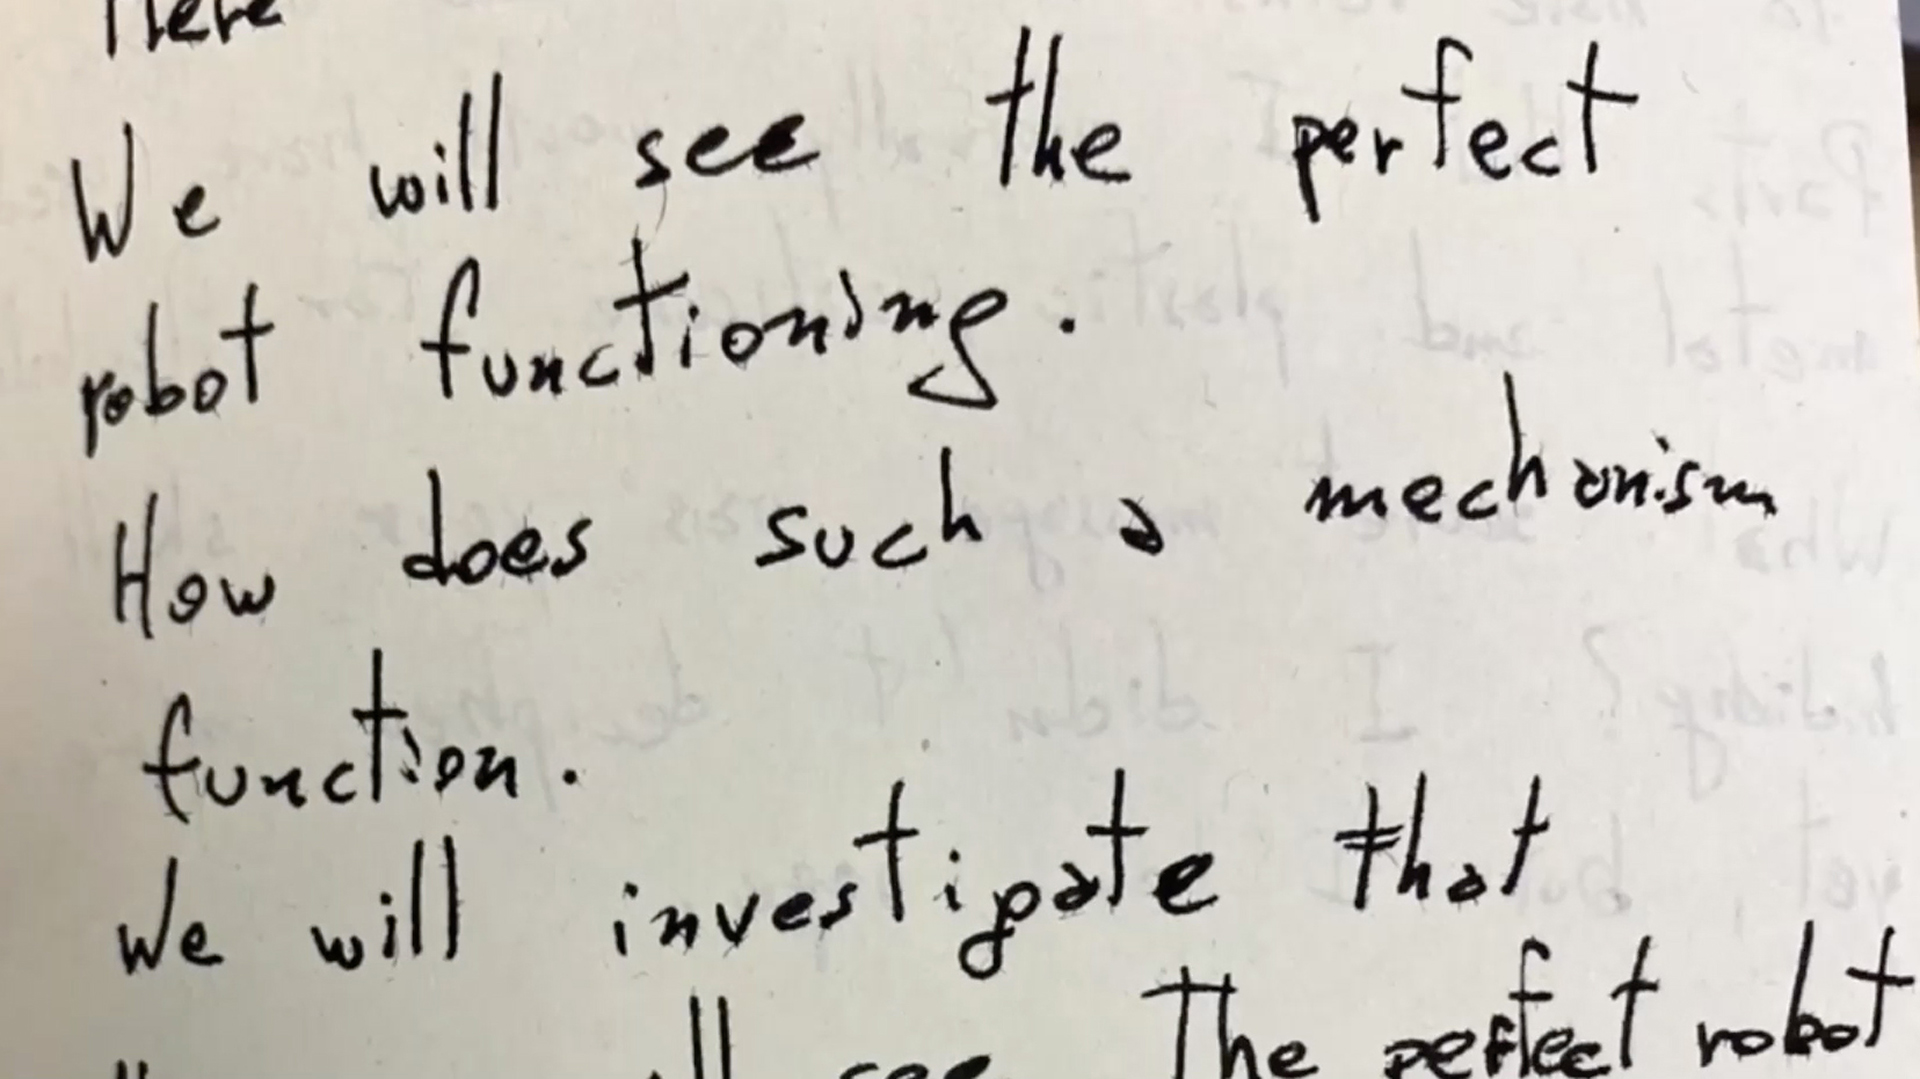 Here
We will see the perfect
robot functioning.
How does such a mechanism
function.
We will investigate that
see The perfect robot